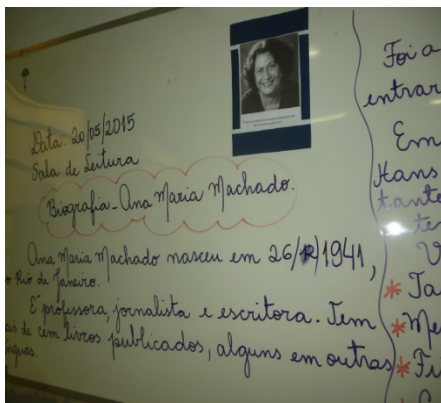 Data: 20/05/2015
Sala de Leitura
Biografia - Ana Maria Machado.
Ana Maria Machado nasceu em 26/12/1941,
o Rio de Janeiro.
É professora, jornalista e escritora. Tem
ais de cem livros publicados, alguns em outras
nguas.
Foi a
entrar
Em
Hans
tante
te
V
* Ja
* Me
* Fu